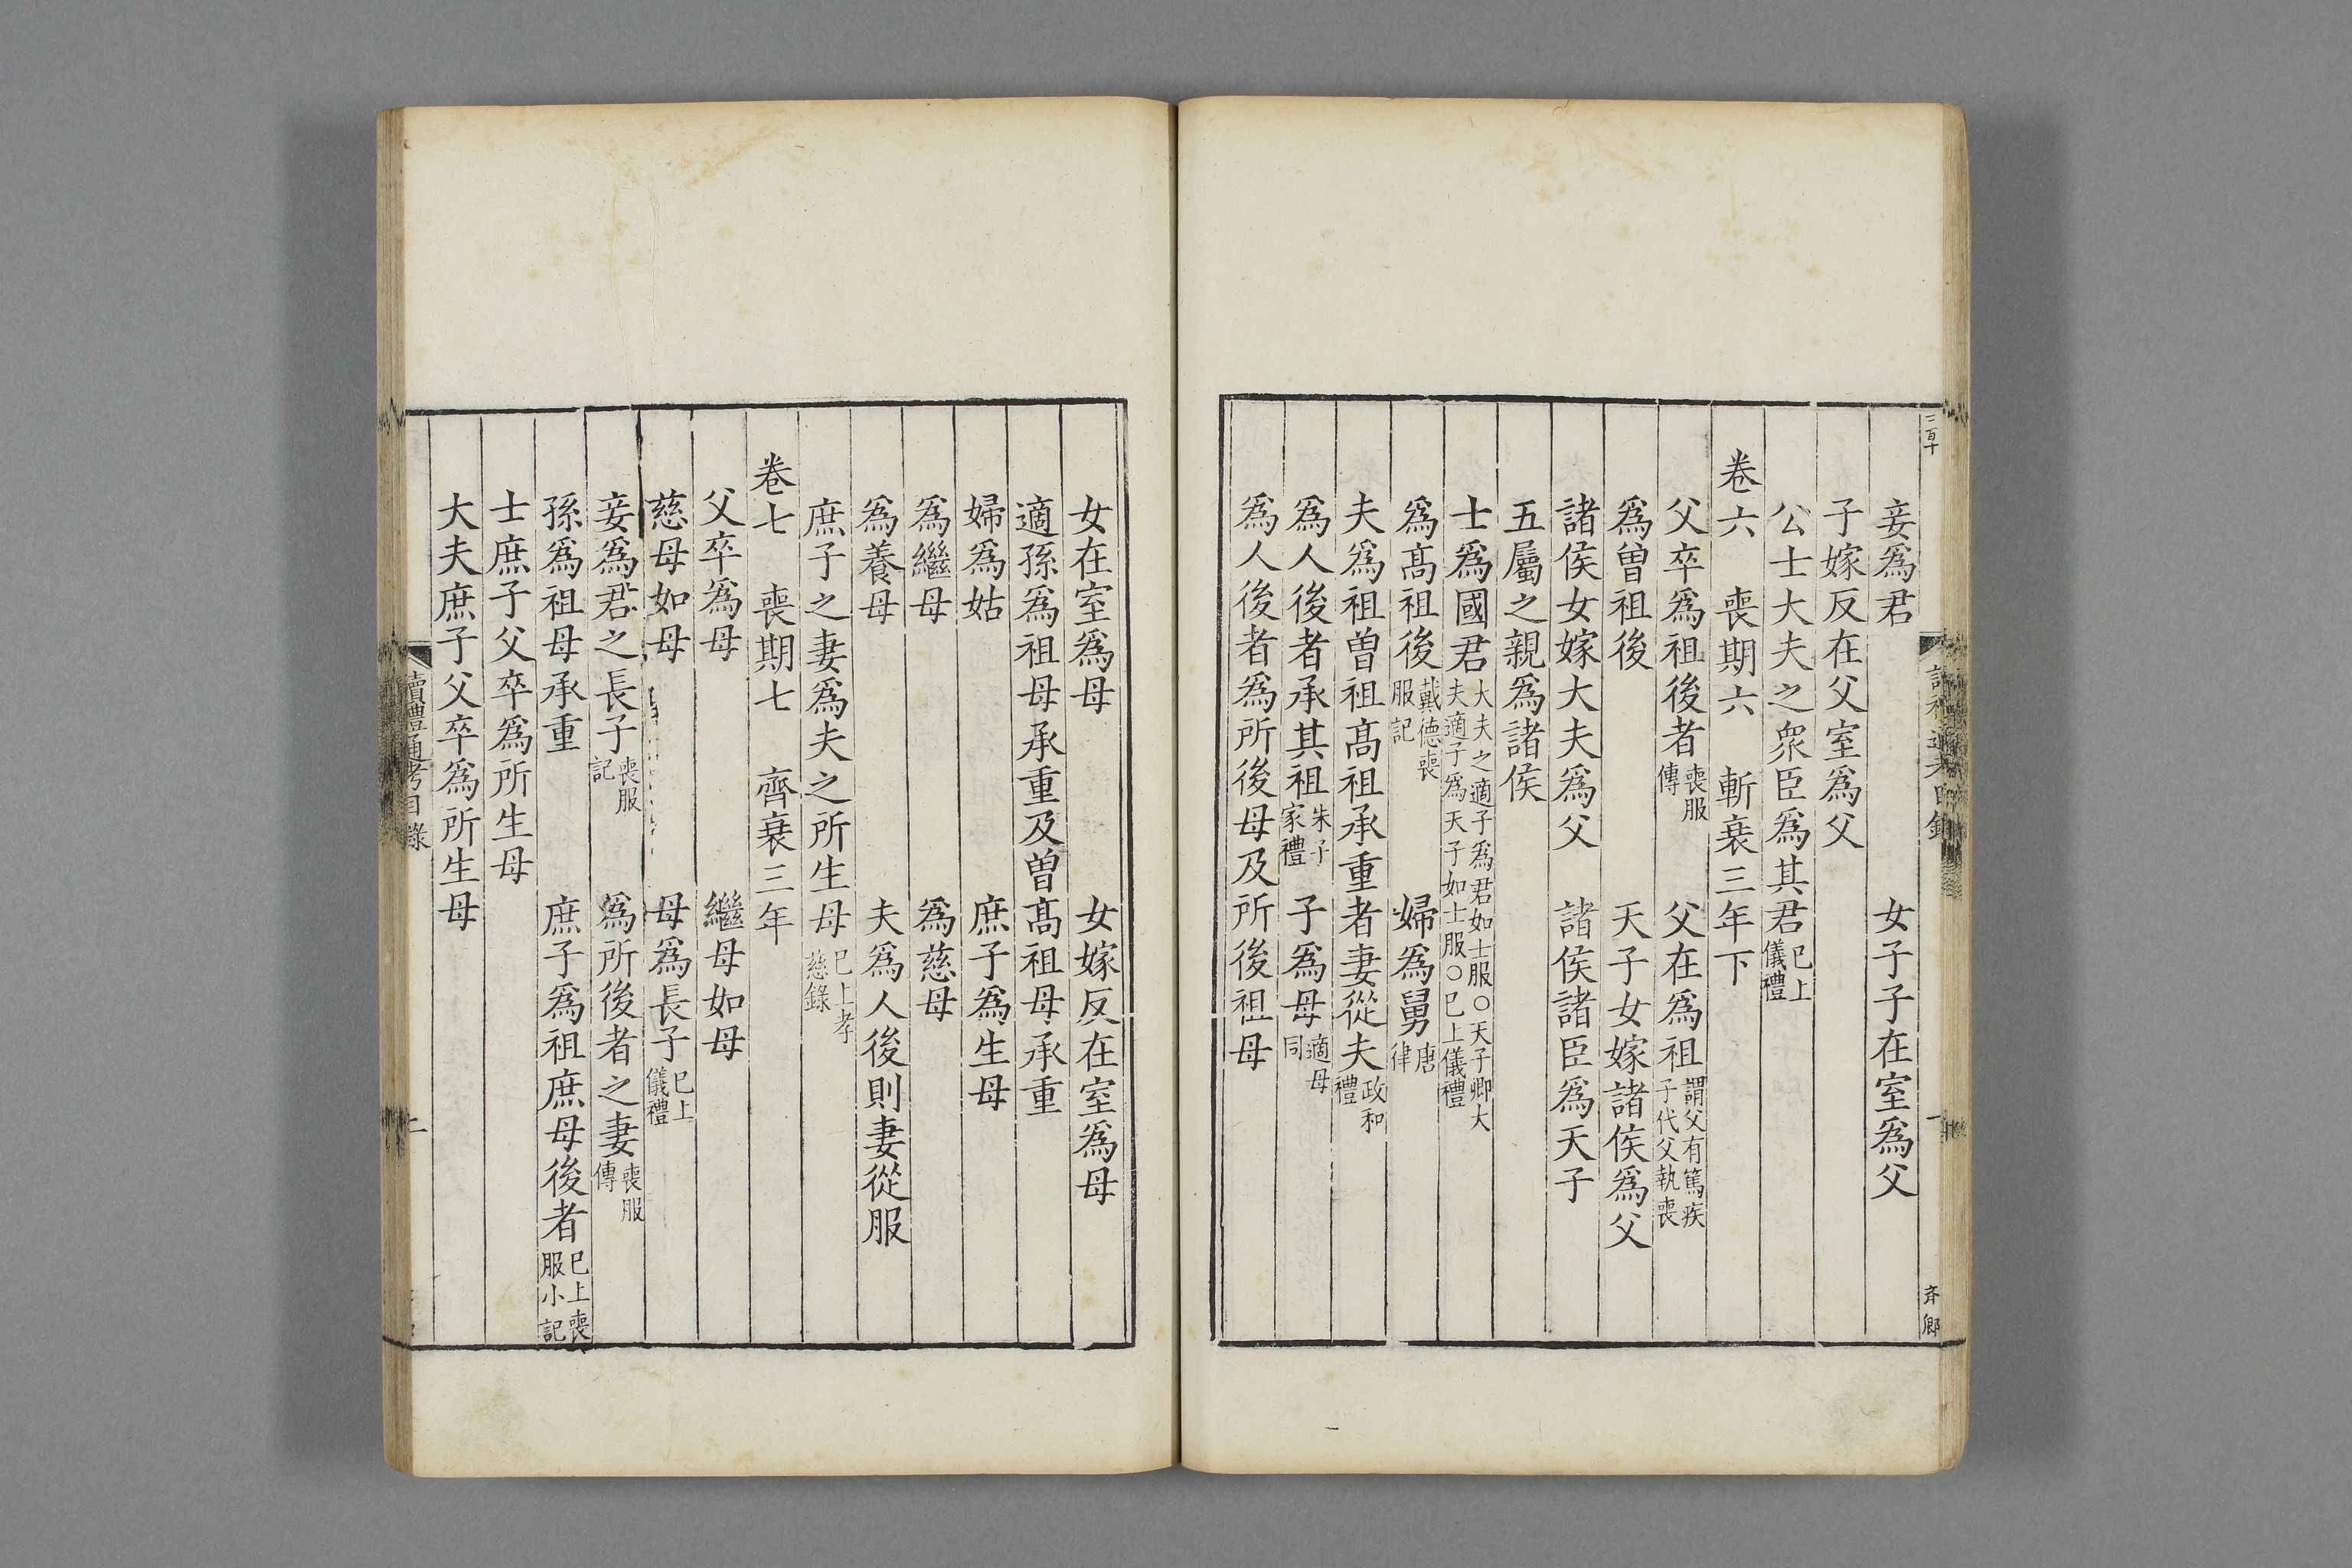 妾爲君　女子子在室爲父
子嫁反在父室爲父
公士大夫之衆臣爲其君已上儀禮
卷六　喪期六　斬衰三年下
父卒爲祖後者喪服傳　父在爲祖謂父有篤疾子代父執喪
爲曾祖後　天子女嫁諸侯爲父
諸侯女嫁大夫爲父　諸侯諸臣爲天子
五屬之親爲諸侯
士爲國君大夫之適子爲君如士服○天子卿大夫適子爲天子如士服○已上儀禮
爲高祖後戴德喪服記　婦爲舅唐律
夫爲祖曾祖高祖承重者妻從夫政和禮
爲人後者承其祖朱子家禮　子爲母適母同
爲人後者爲所後母及所後祖母
二百十
齐卿
女在室爲母　女嫁反在室爲母
適孫爲祖母承重及曾高祖母承重
婦爲姑　庶子爲生母
爲繼母　爲慈母
爲養母　夫爲人後則妻從服
庶子之妻爲夫之所生母已上孝慈錄
卷七　喪期七　齊衰三年
父卒爲母　繼母如母
慈母如母　母爲長子已上儀禮
妾爲君之長子喪服記　爲所後者之妻喪服傳
孫爲祖母承重　庶子爲祖庶母後者已上喪服小記
士庶子父卒爲所生母
大夫庶子父卒爲所生母
讀禮通考目錄